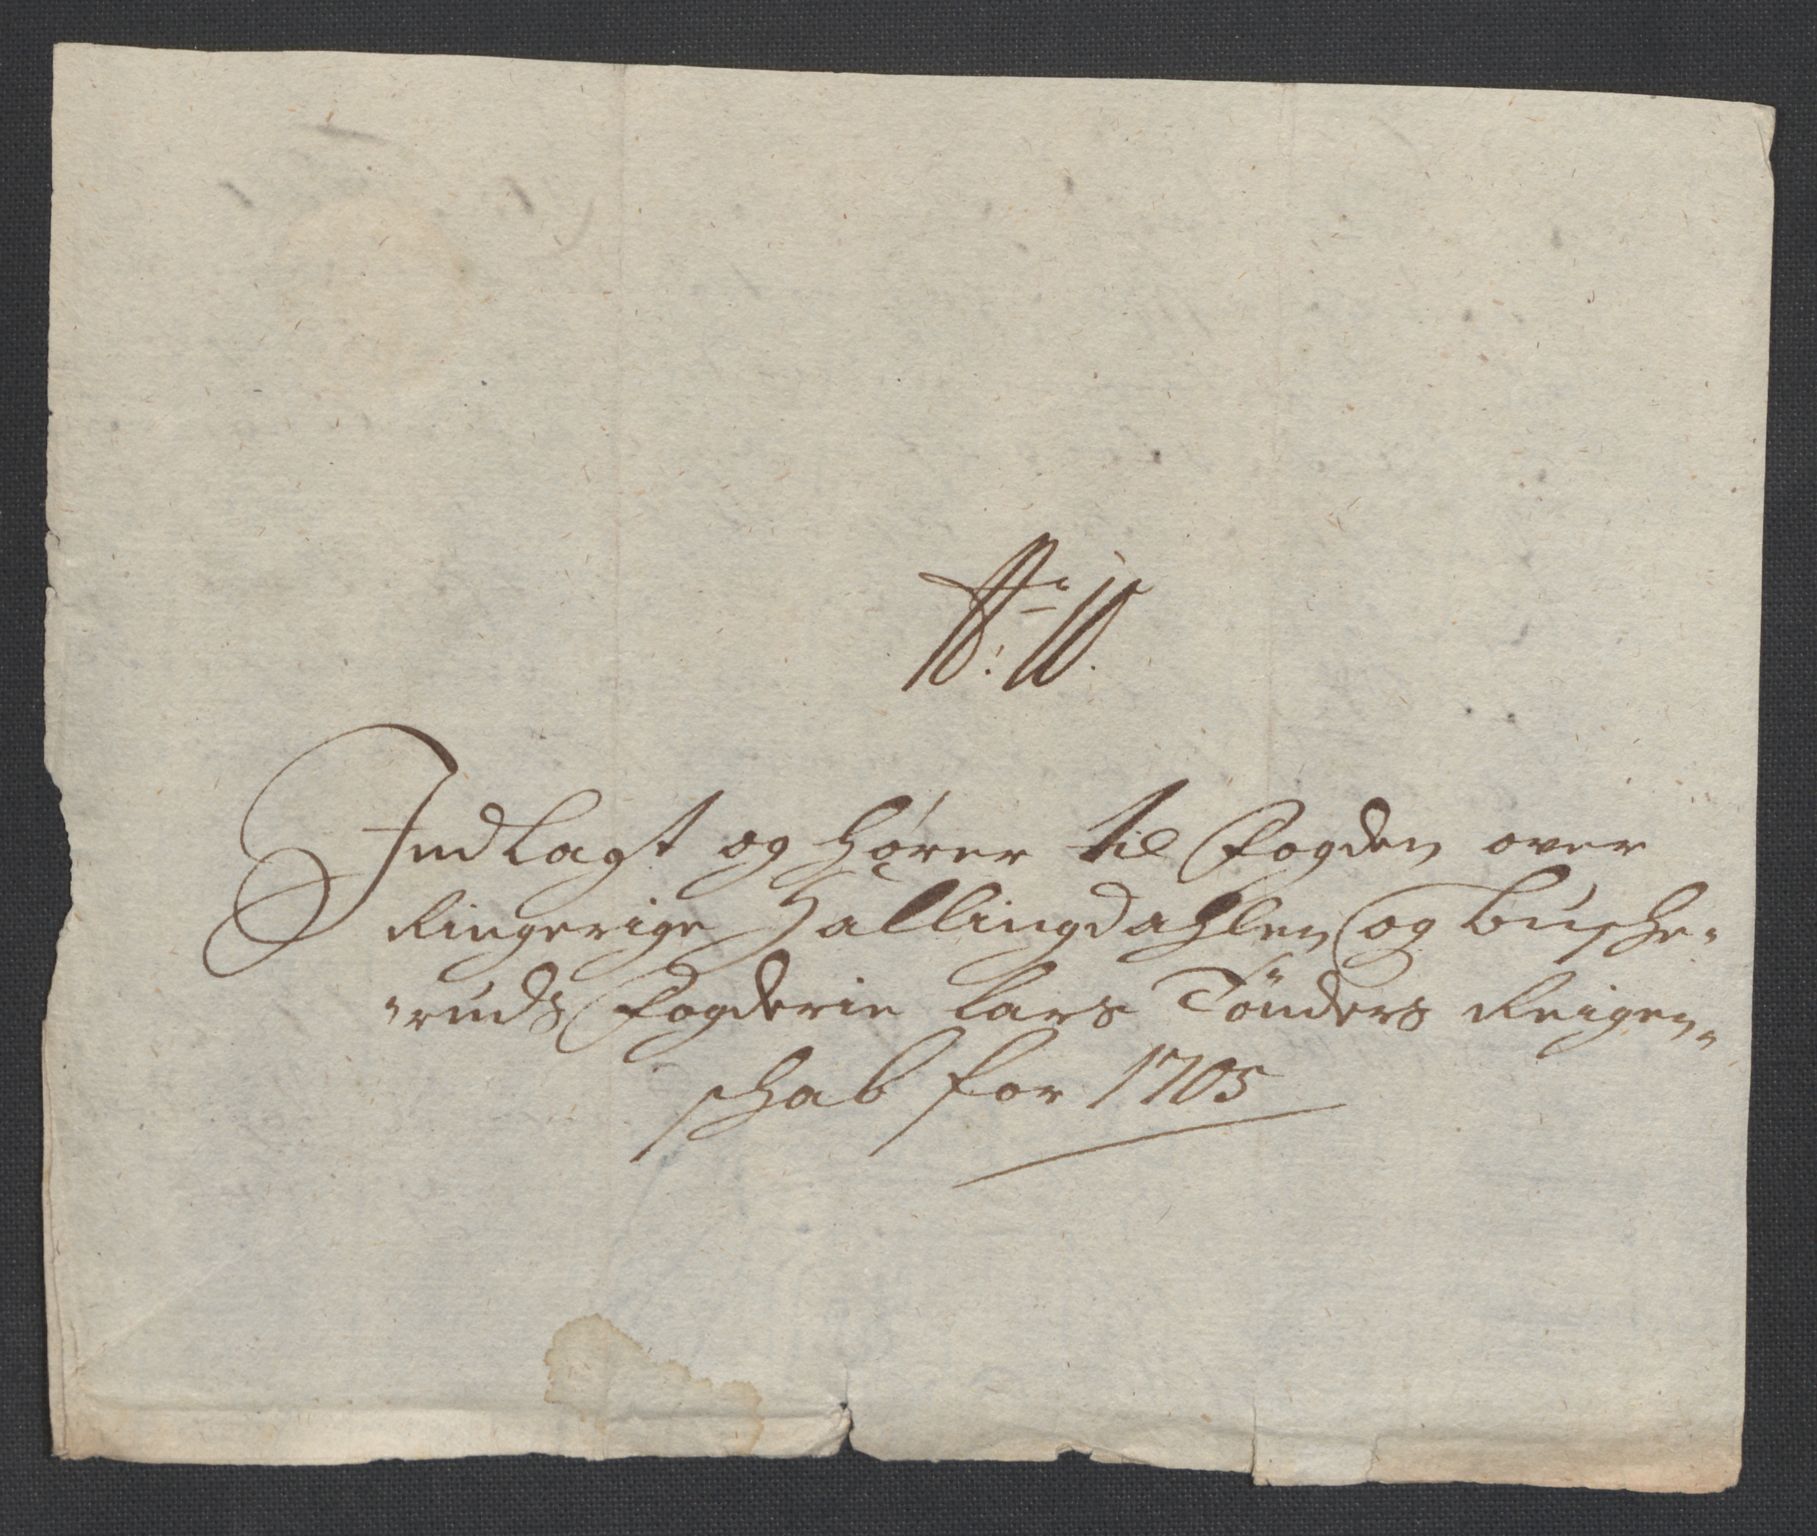 No: 10.
Indlagt og hører til Fogden over
Ringerige Hallingdahlen og Busche-
-ruds Fogderie Lars Tønders Reigen-
schab for 1705